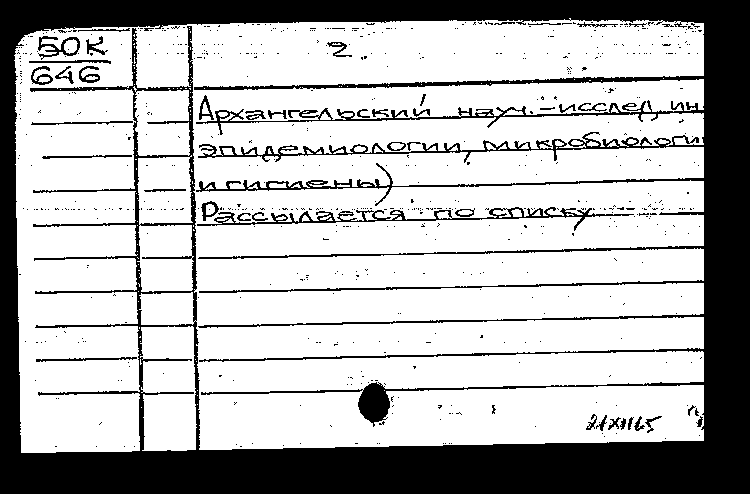 50К
646
2.
Архангельский науч.-исслед, ин
эпидемиологии, микробиологии
и гигиены)
Рассылается по списку
21XII65